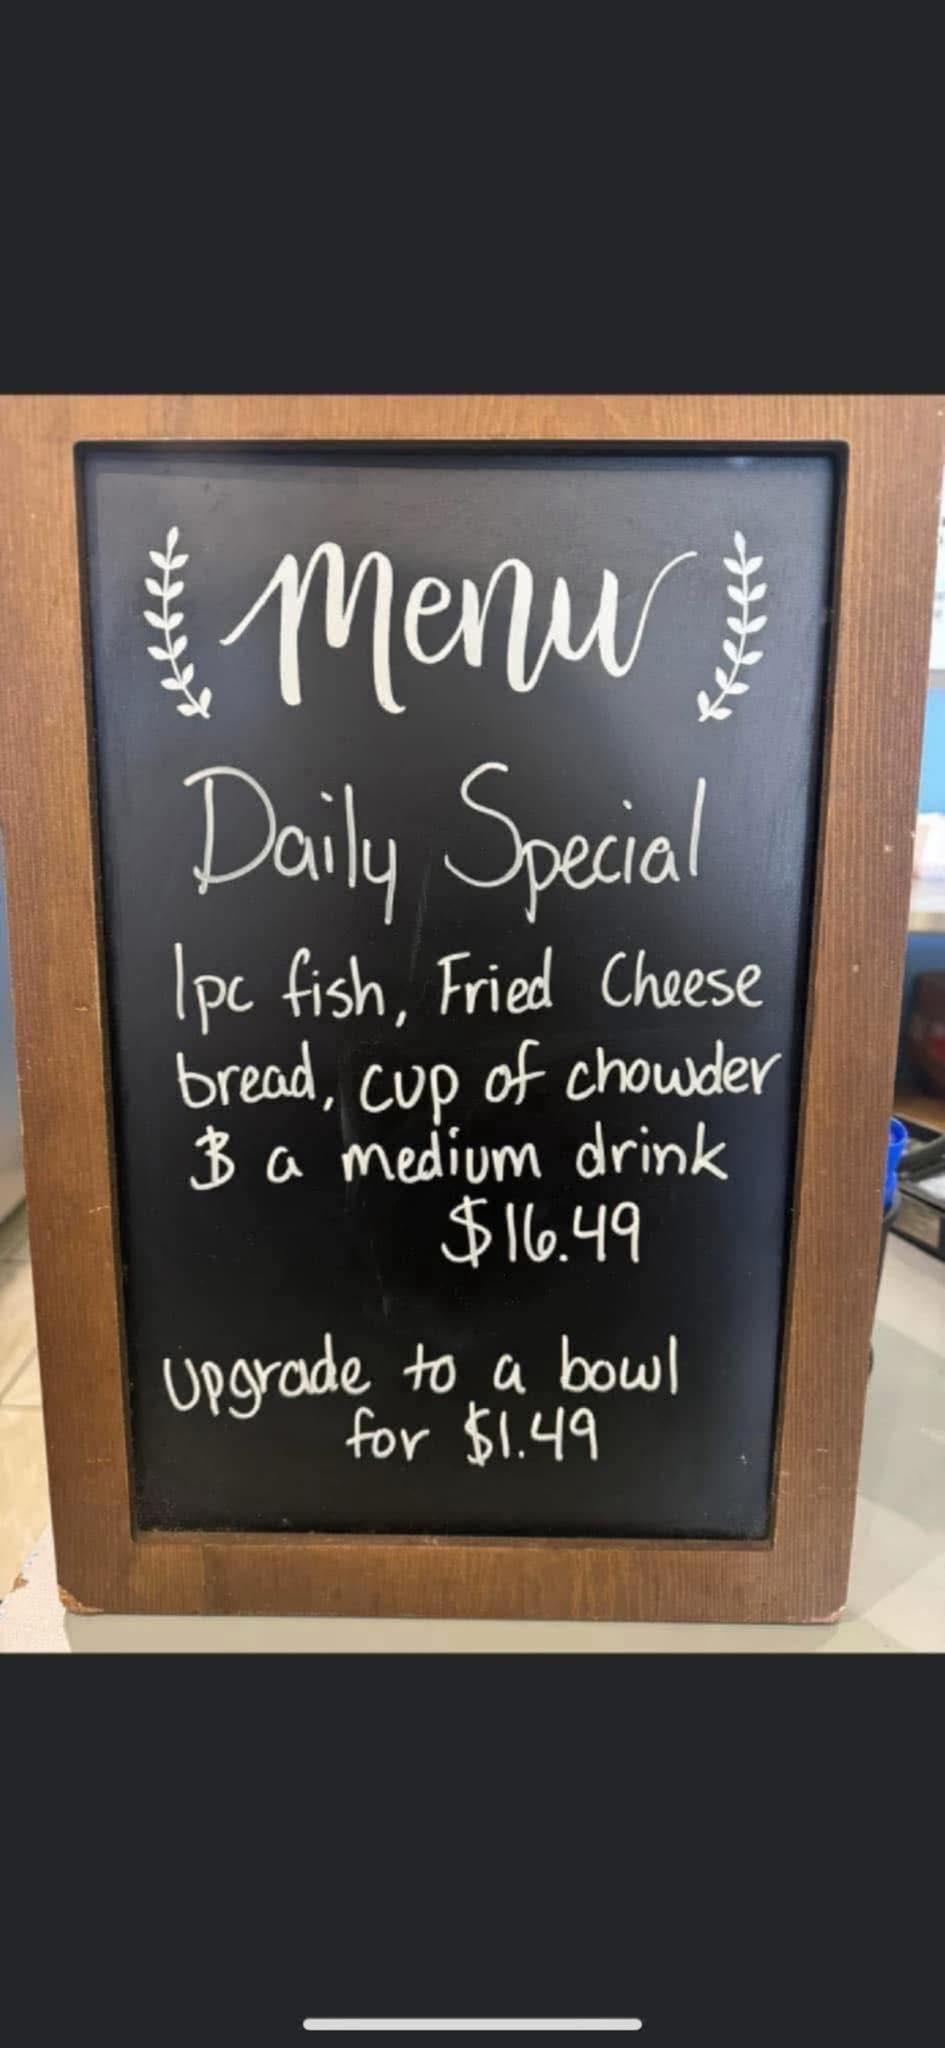 Menu
Daily Special
1pc fish, Fried Cheese
bread, cup of chowder
& a medium drink
$16.49
upgrade to a bowl
for $1.49